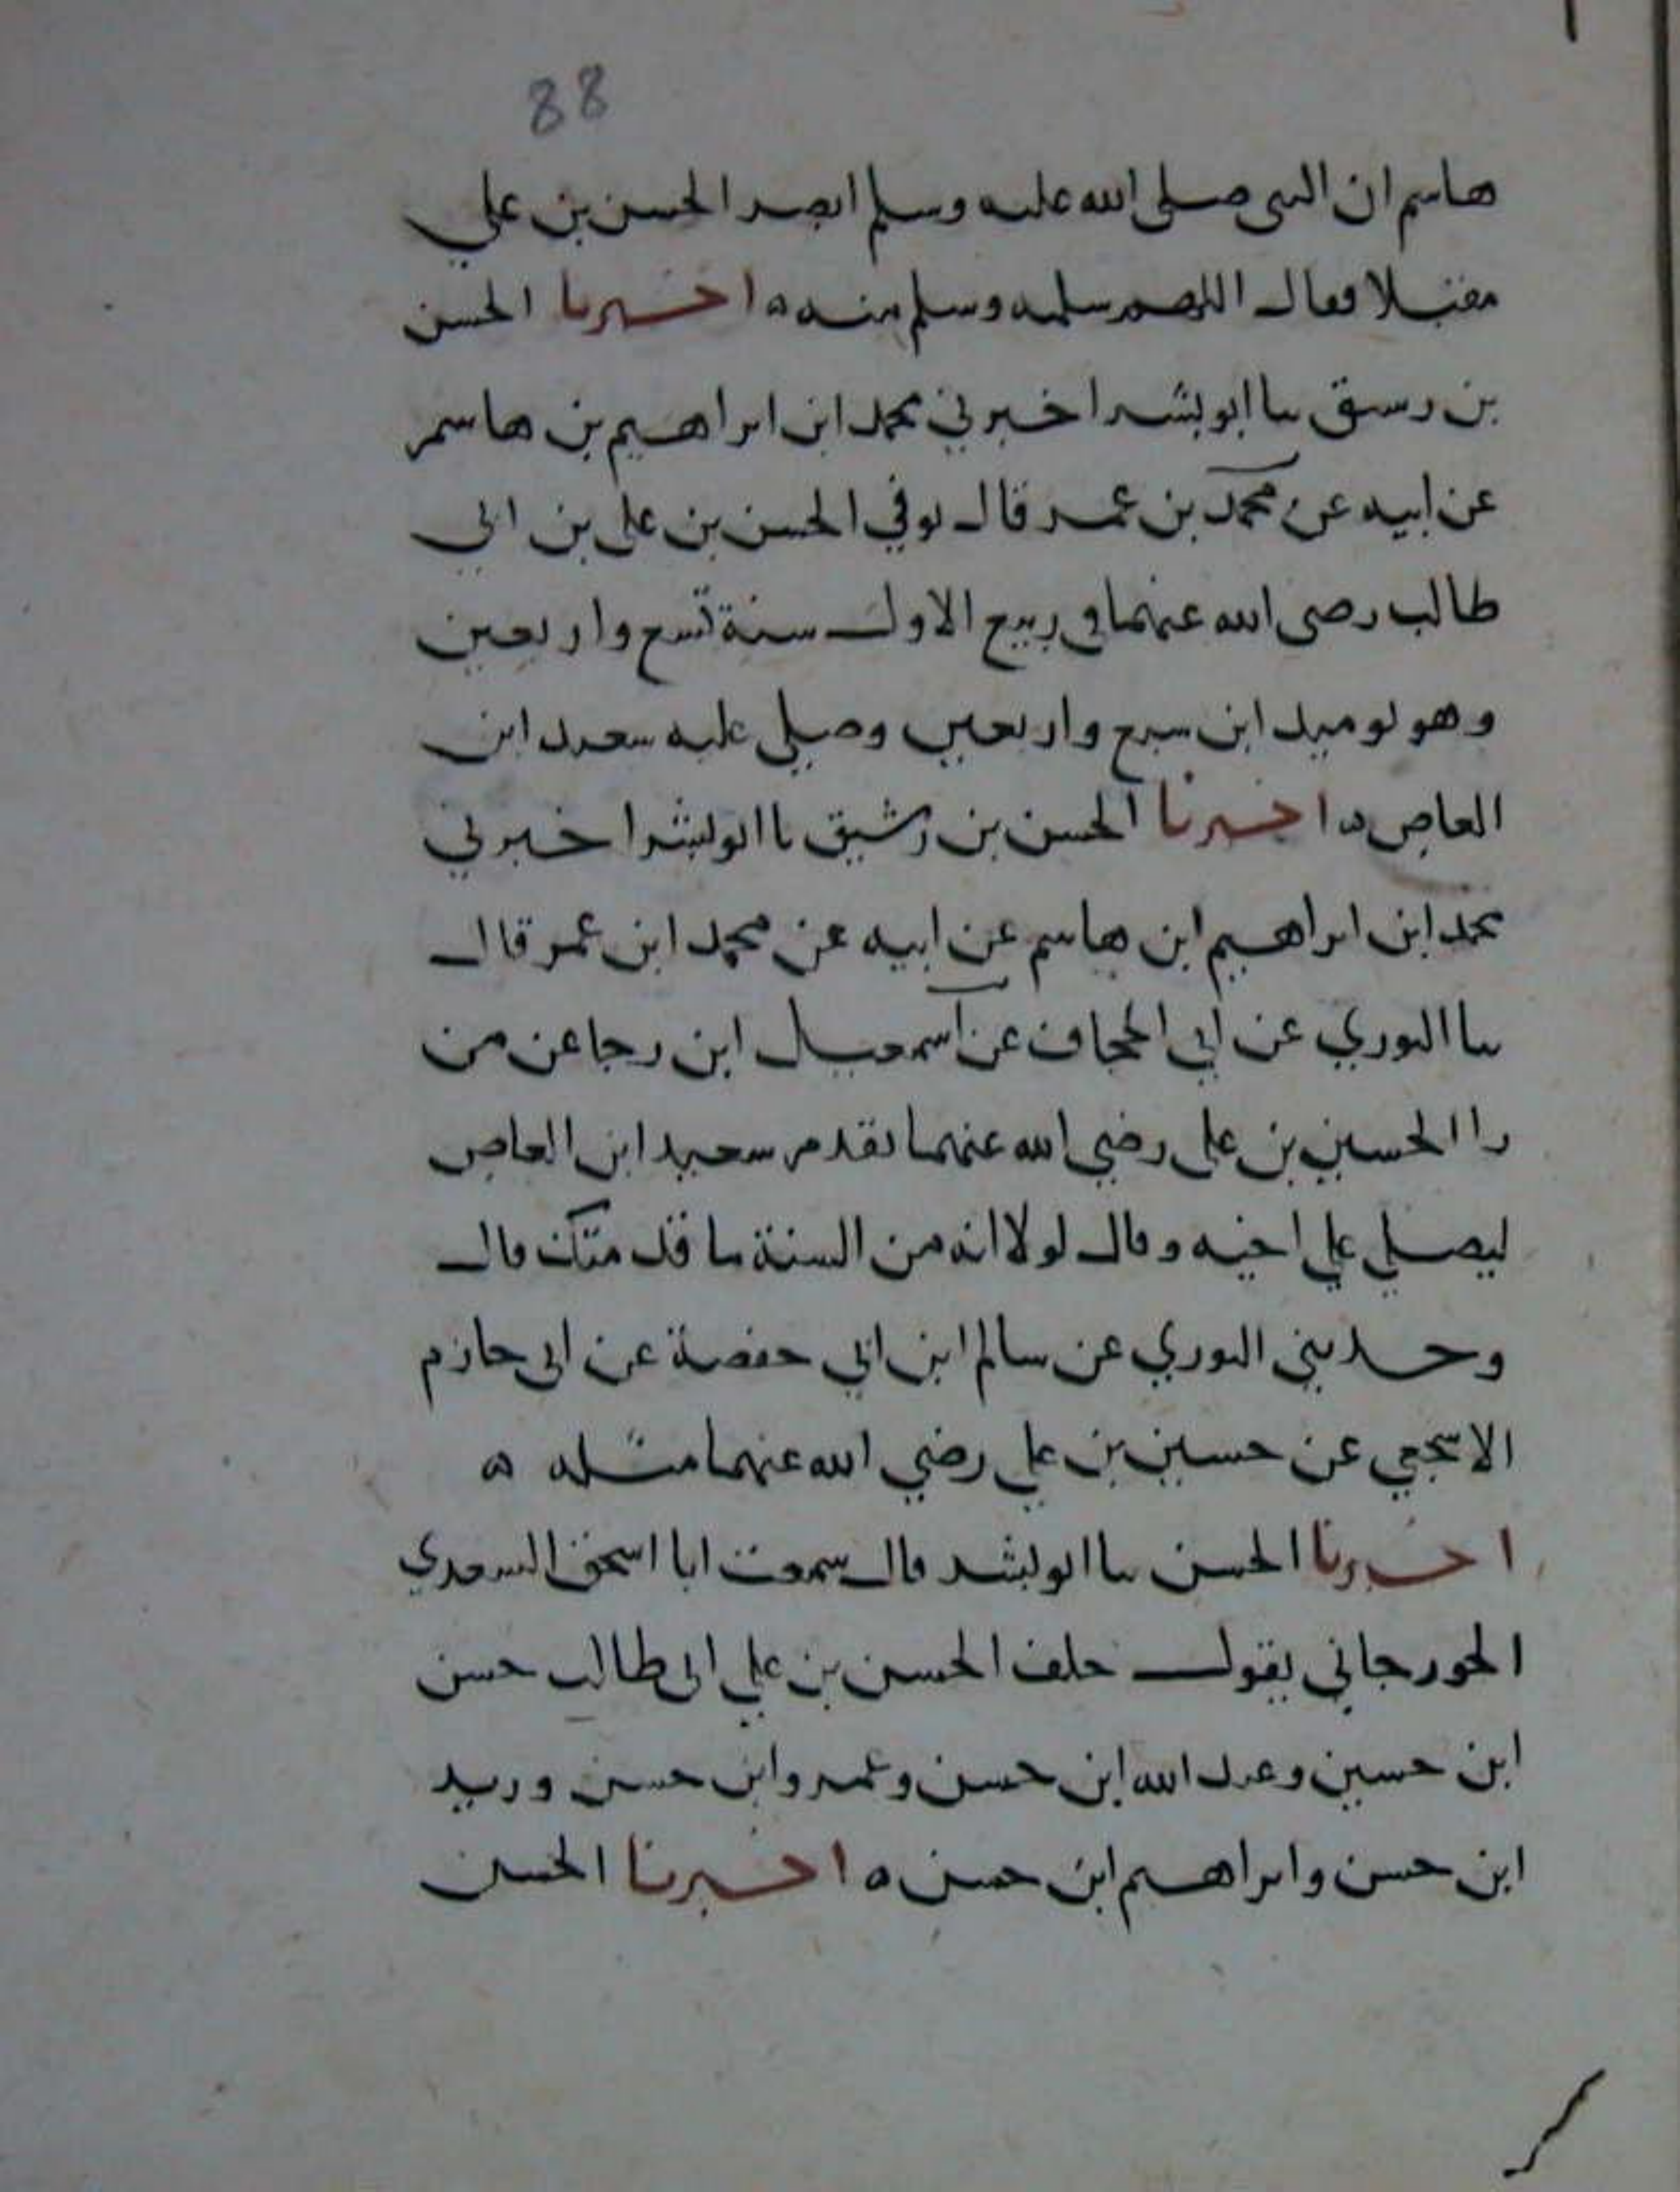 88
هاشم ان النبي صلى الله عليه وسلم ابصر الحسن بن علي
مقبلا فقال اللهم سلمه وسلم منه ه اخبرنا الحسن
بن رشيق نا ابو بشر اخبرني محمد ابن ابراهيم بن هاشم
عن ابيه عن محمد بن عمر قال توفي الحسن بن على بن ابي
طالب رضى الله عنهما في ربيع الاول سنة تسع واربعين
وهو يوميد ابن سبع واربعين وصلي عليه سعيد ابن
العاص ه اخبرنا الحسن بن رشيق نا ابو بشر اخبرني
محمد ابن ابراهيم ابن هاشم عن ابيه عن محمد ابن عمر قال
نا الثوري عن ابي الجحاف عن اسمعيل ابن رجا عن من
را الحسين بن على رضي الله عنهما يقدم سعيد ابن العاص
ليصلي علي اخيه وقال لولا انه من السنة ما قدمتك قال
وحدثني الثوري عن سالم ابن ابي حفصة عن ابى حازم
الاشجعي عن حسين بن علي رضي الله عنهما مثله ه
اخبرنا الحسن نا ابو بشر قال سمعت ابا اسحق السعدي
الجورجاني يقول خلف الحسن بن علي ابى طالب حسن
ابن حسين وعبد الله ابن حسن وعمرو ابن حسن وزيد
ابن حسن وابراهيم ابن حسن ه اخبرنا الحسن